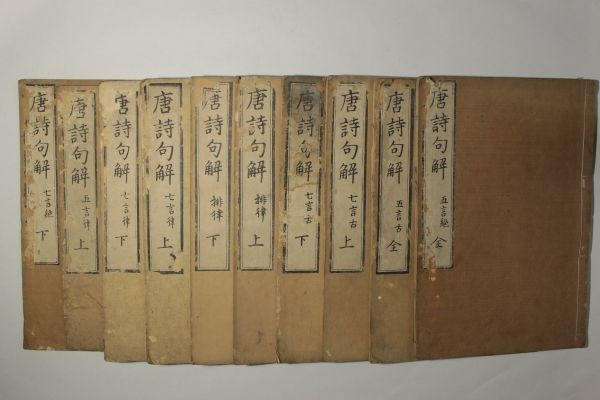 唐詩句解 五言絶 全
唐詩句解 五言古 全
唐詩句解 七言古 上
唐詩句解 七言古 下
唐詩句解 排律 上
唐詩句解 排律 下
唐詩句解 七言律 上
唐詩句解 七言律 下
唐詩句解 五言律 上
唐詩句解 七言絶 下